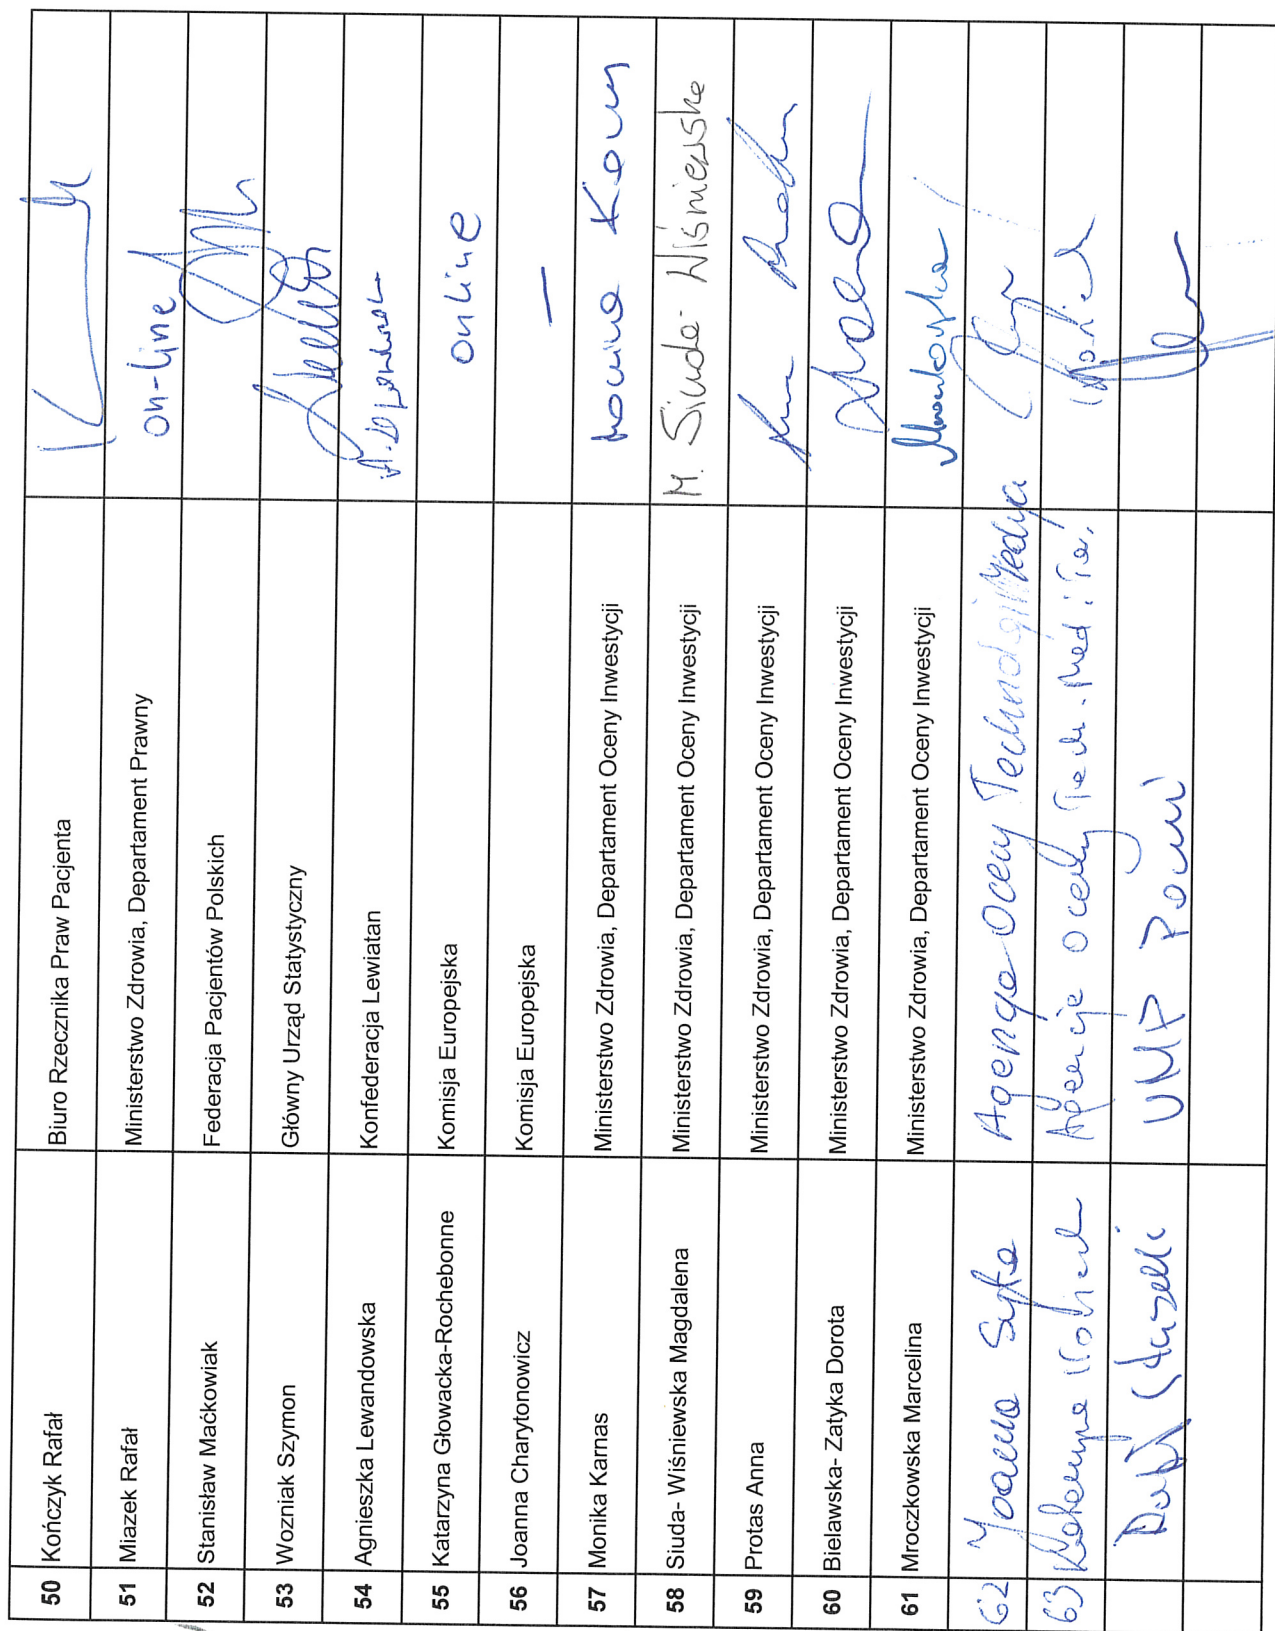 50 Kończyk Rafał Biuro Rzecznika Praw Pacjenta
51 Miazek Rafał Ministerstwo Zdrowia, Departament Prawny on-line
52 Stanisław Maćkowiak Federacja Pacjentów Polskich
53 Wozniak Szymon Główny Urząd Statystyczny
54 Agnieszka Lewandowska Konfederacja Lewiatan
55 Katarzyna Głowacka-Rochebonne Komisja Europejska online
56 Joanna Charytonowicz Komisja Europejska —
57 Monika Karnas Ministerstwo Zdrowia, Departament Oceny Inwestycji
58 Siuda- Wiśniewska Magdalena Ministerstwo Zdrowia, Departament Oceny Inwestycji M. Siuda- Wiśniewska
59 Protas Anna Ministerstwo Zdrowia, Departament Oceny Inwestycji
60 Bielawska- Zatyka Dorota Ministerstwo Zdrowia, Departament Oceny Inwestycji
61 Mroczkowska Marcelina Ministerstwo Zdrowia, Departament Oceny Inwestycji
62 Joanna Agencja Oceny Technologii
63 Katarzyna Agencja oceny Tech. Med i Tar.
UMP